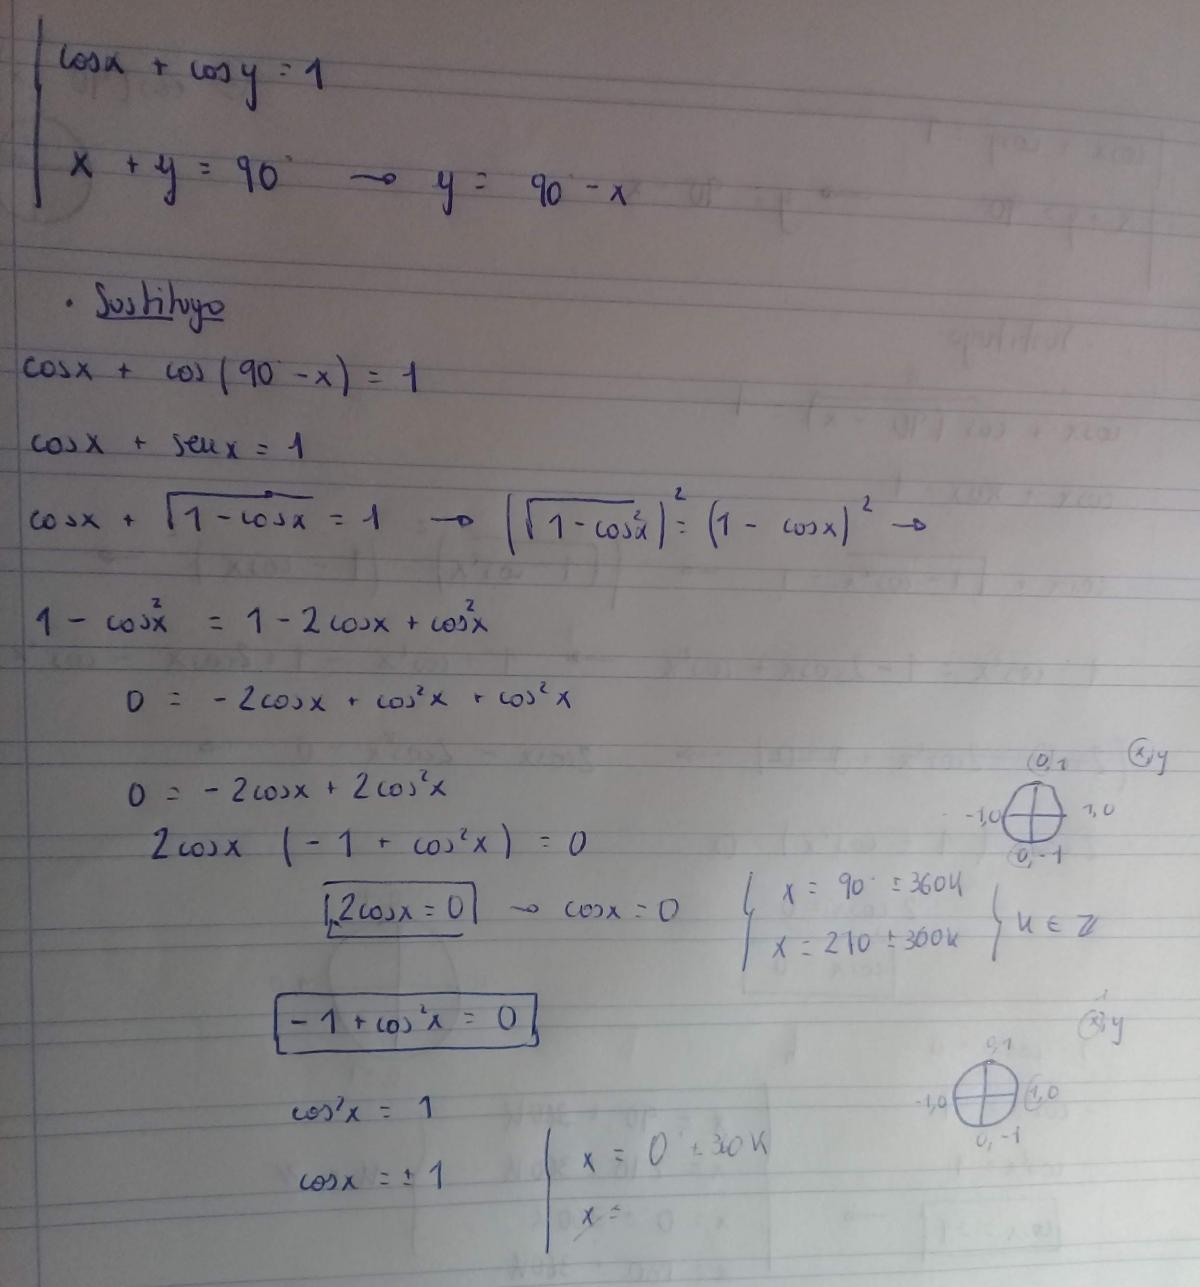 cosx + cosy = 1
x + y = 90° → y = 90° - x
· Sustituyo
cosx + cos(90° - x) = 1
cosx + senx = 1
cosx + √(1 - cosx) = 1 → (√(1 - cos²x))² = (1 - cosx)² →
1 - cos²x = 1 - 2cosx + cos²x
0 = -2cosx + cos²x + cos²x
0 = -2cosx + 2cos²x
x, y
0,1
-1,0 1,0
0,-1
2cosx (-1 + cos²x) = 0
2cosx = 0 → cosx = 0
x = 90° ± 360K
x = 270 ± 360K
K ∈ Z
-1 + cos²x = 0
x, y
0,1
-1,0 1,0
0,-1
cos²x = 1
cosx = ±1
x = 0 ± 360K
x =